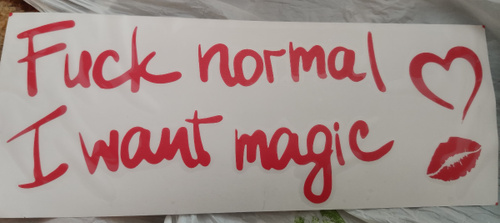 Fuck normal
I want magic